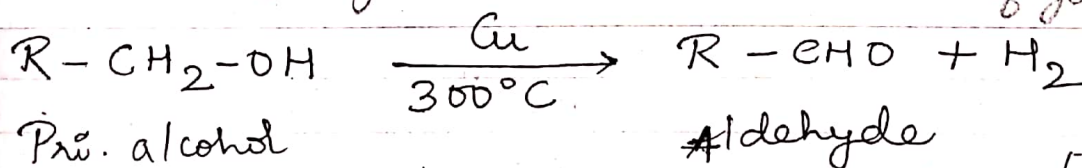 R - CH2 - OH Cu/300°C → R - CHO + H2
Pri. alcohol Aldehyde